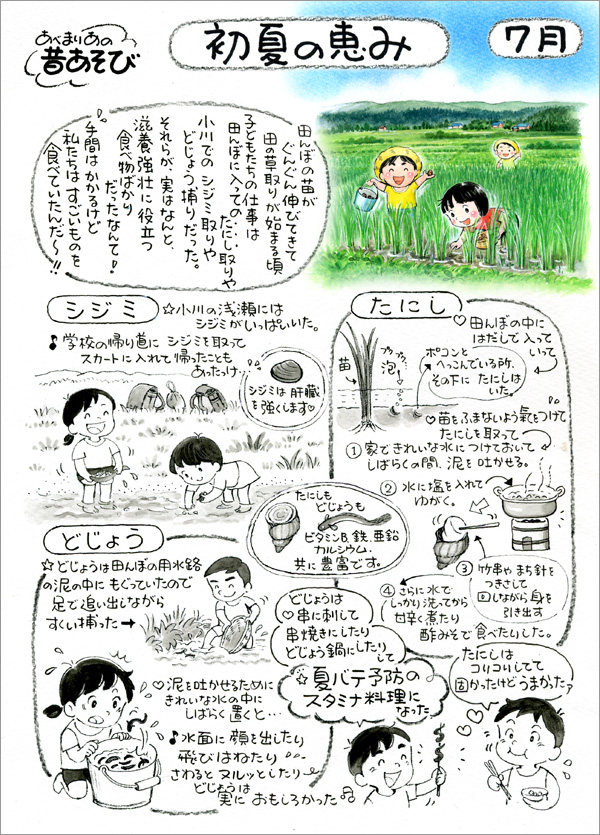 あべまりあの
昔あそび
初夏の恵み
7月
田んぼの苗が
ぐんぐん伸びてきて
田の草取りが始まる頃
子どもたちの仕事は
田んぼに入っての
たにし取りや
小川での シジミ取りや
どじょう捕りだった。
それらが、実はなんと、
滋養強壮に役立つ
食べ物ばかり
だったなんて!
手間はかかるけど
私たちは すごいものを
食べていたんだ〜!!
シジミ
☆小川の浅瀬には
シジミがいっぱいいた。
♪学校の帰り道に シジミを取って
スカートに入れて帰ったことも
あったけ…
シジミは肝臓
を強くします♡
たにし
♡田んぼの中に
はだしで入って
いって
苗
プクプク…
泡
ポコンと
へっこんでいる所、
その下に たにしは
いた。
♡苗をふまないよう氣をつけて
たにしを取って
①家できれいな水につけておいて
しばらくの間、泥を吐かせる。
②水に塩を入れて
ゆがく。
③竹串や まち針を
つきさして
回しながら身を
引き出す
④さらに水で
しっかり洗ってから
甘辛く煮たり
酢みそで食べたりした。
たにしも
どじょうも
ビタミンB、鉄、亜鉛
カルシウム、
共に豊富です。
どじょう
☆どじょうは田んぼの用水路
の泥の中に もぐっていたので
足で追い出しながら
すくい捕った→
どじょうは
♡串に刺して
串焼きにしたり
どじょう鍋にしたりして
☆夏バテ予防の
スタミナ料理に
なった
たにしは
コリコリしてて
固かったけどうまかった?
♡泥を吐かせるために
きれいな水の中に
しばらく置くと…
♪水面に顔を出したり
飛びはねたり
さわると ヌルッとしたり
どじょうは
実におもしろかった♫